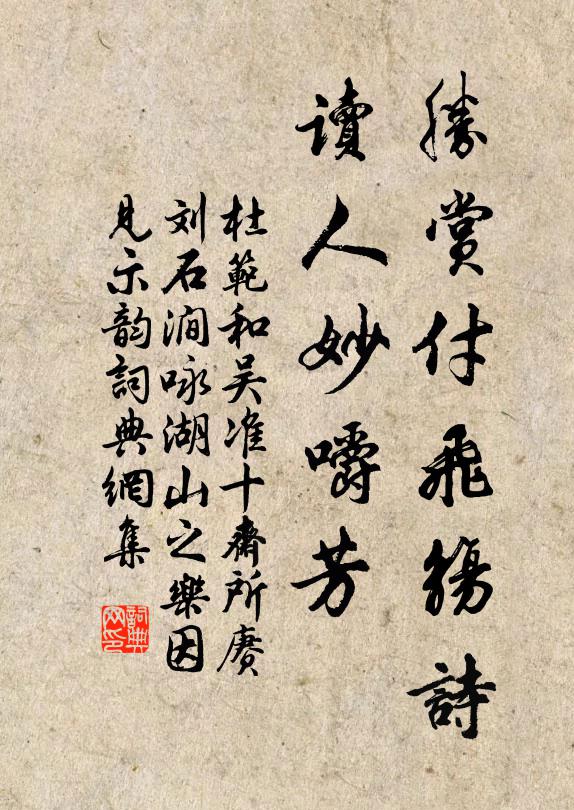 勝賞付飛觴詩
讀人妙嚼芳
杜範和吴准十齋所赓
刘石澗咏湖山之樂因
見示韵詞典網集
詞典网印